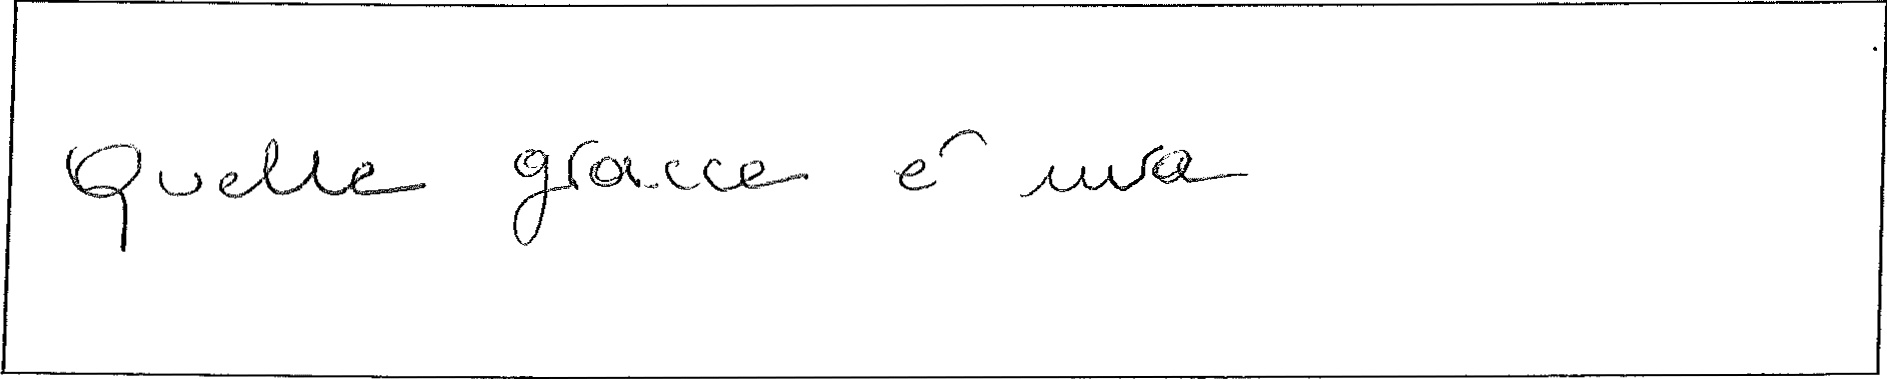 Quelle gracce e' uva